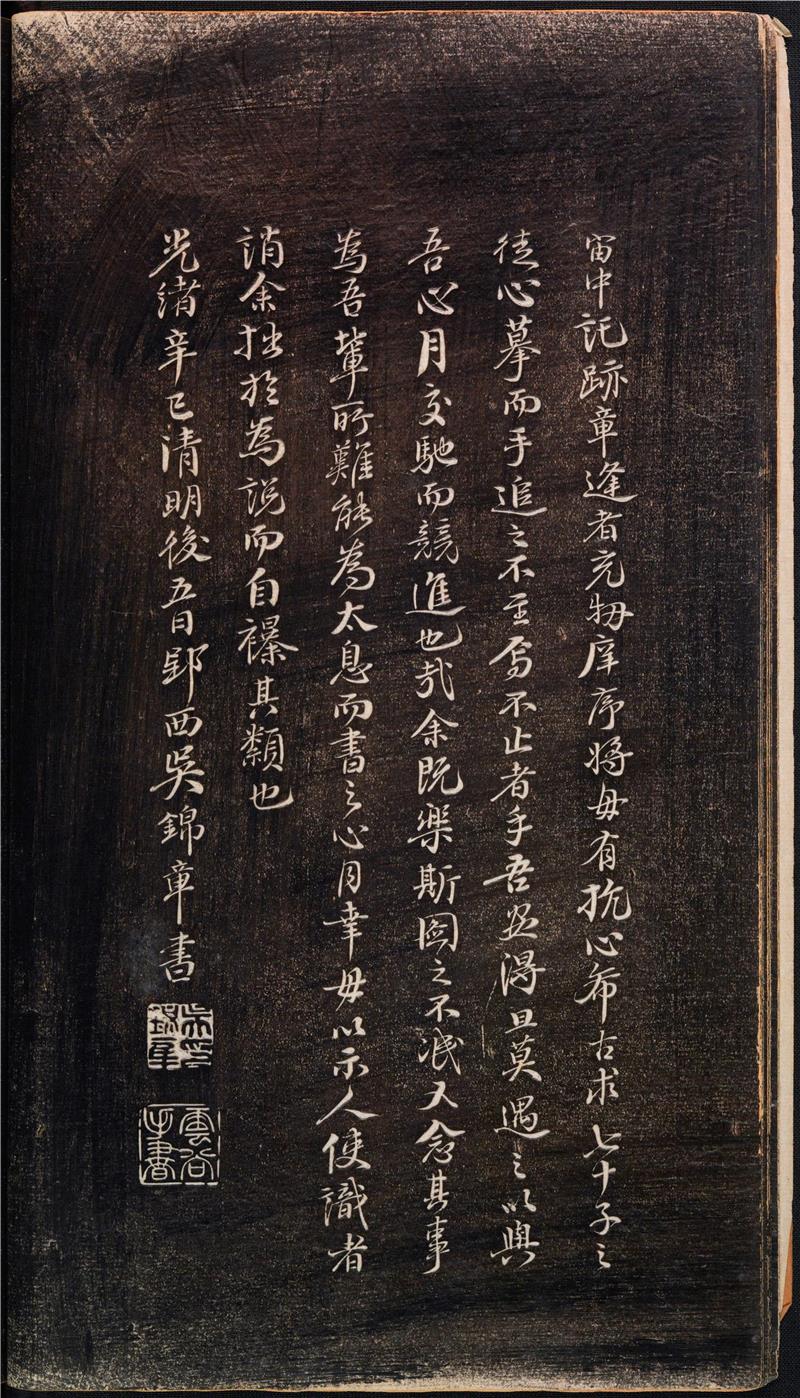 宙中託跡章逢者充牣庠序將毋有抗心希古求七十子之
徒心摹而手追之不至焉不止者乎吾安得旦莫遇之以與
吾心月交馳而競進也哉余既樂斯圖之不泯又念其事
為吾輩所難能為太息而書之心月幸毋以示人使識者
誚余拙於為說而自襮其纇也
光緒辛巳清明後五日郢西吳錦章書
吳印錦章
雲谷手書